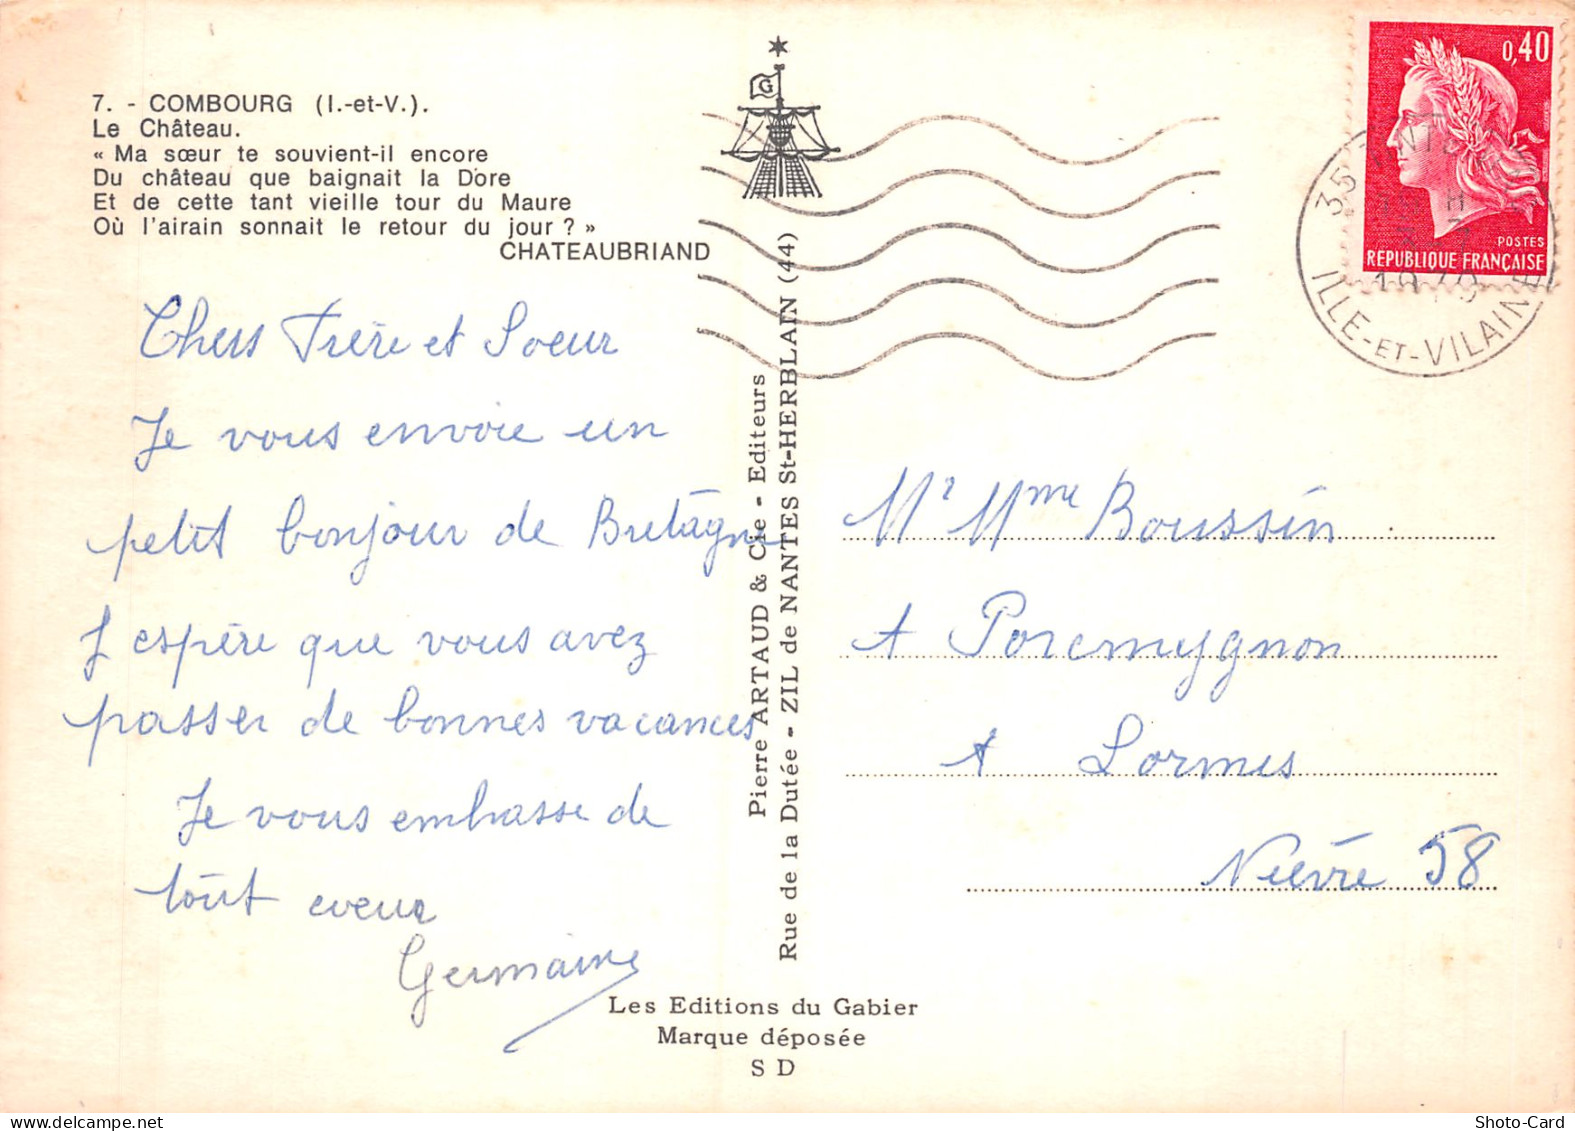 7. - COMBOURG (I.-et-V.).
Le Château.
« Ma sœur te souvient-il encore
Du château que baignait la Dore
Et de cette tant vieille tour du Maure
Où l'airain sonnait le retour du jour ? »
CHATEAUBRIAND
Chers Frère et Soeur
Je vous envoie un
petit bonjour de Bretagne
J espère que vous avez
passer de bonnes vacances
Je vous embrasse de
tout coeur
Germaine
G
Pierre ARTAUD & Cie - Editeurs
Rue de la Dutée - ZIL de NANTES St-HERBLAIN (44)
Les Editions du Gabier
Marque déposée
S D
0,40
POSTES
REPUBLIQUE FRANÇAISE
35
ILLE-ET-VILAINE
Mr Mme Boussin
A Porcmygnon
A Lormes
Nièvre 58
Shoto-Card